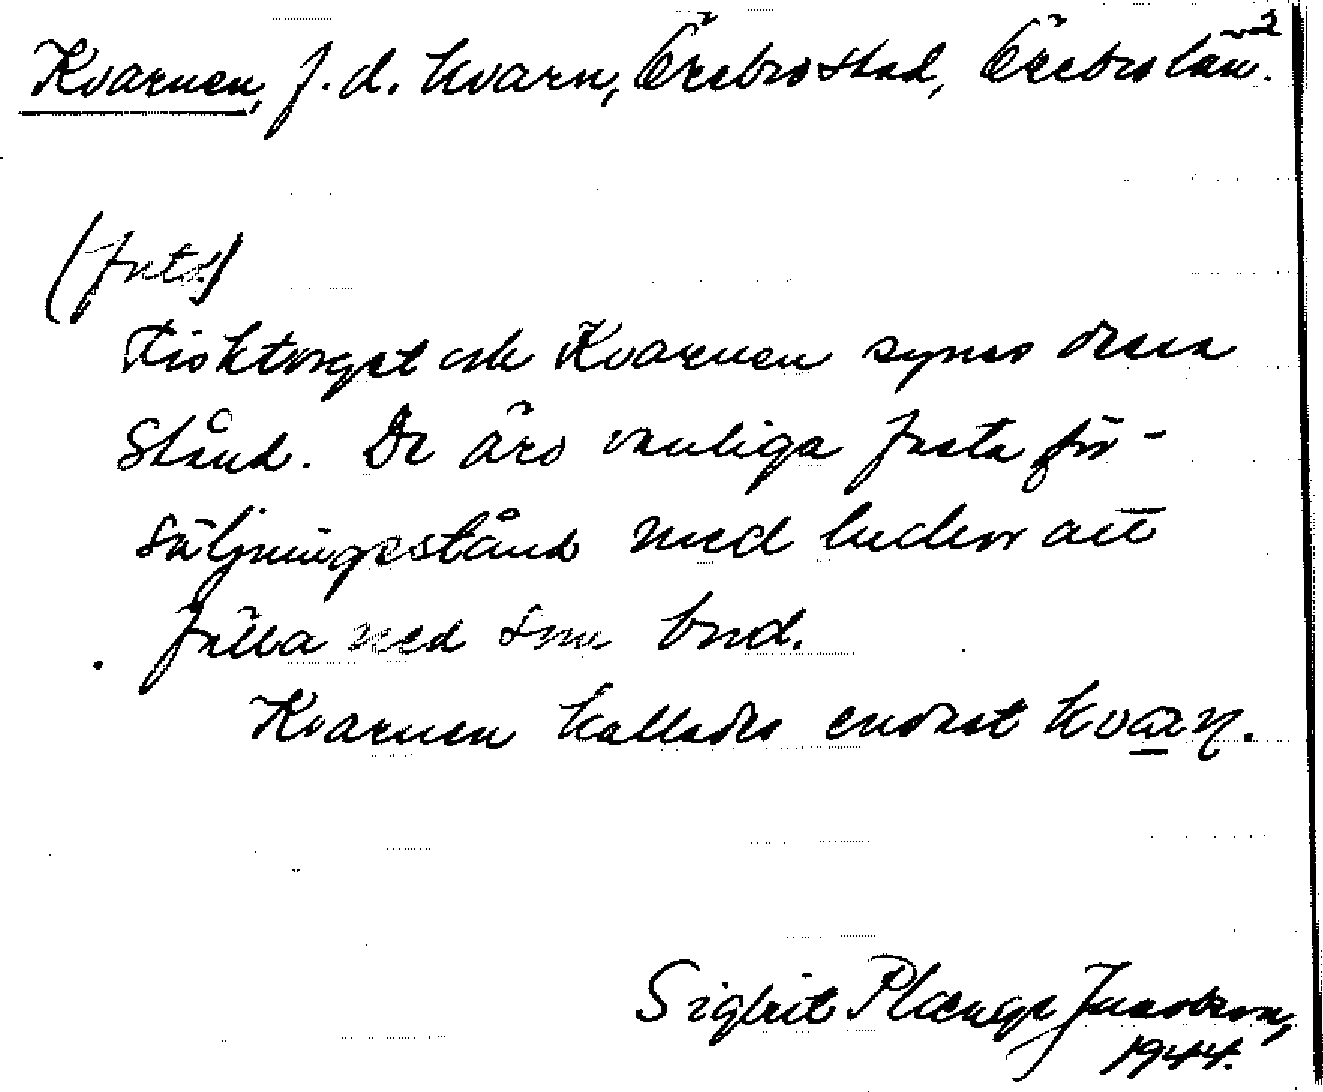 2
Kvarnen, f.d. kvarn, Örebro stad, Örebro län.
(forts.)
Fisktorget och Kvarnen synes dessa
stånd. De äro vanliga fasta för-
säljningsstånd med luckor att
fälla ned som bord.
Kvarnen kallades endast kvarn.
Sigbrit Plænge Jacobson,
1944.